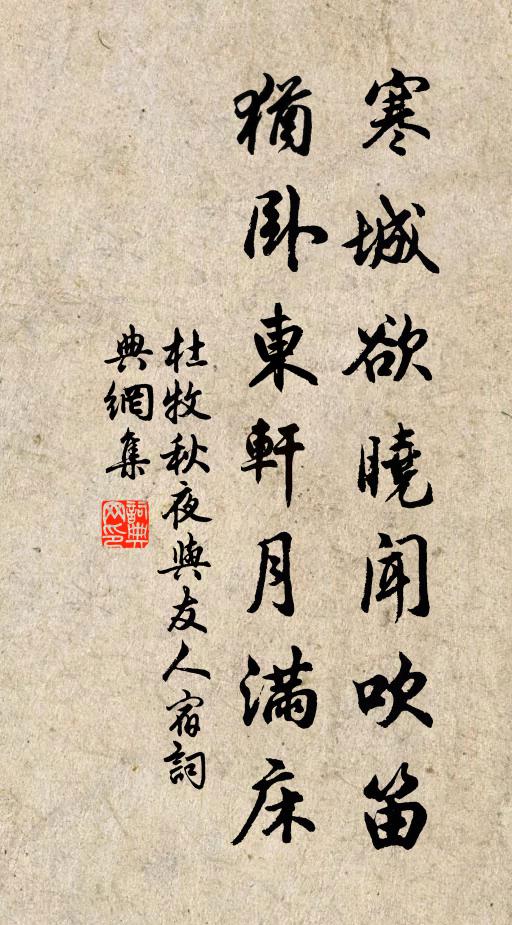 寒城欲曉聞吹笛
猶臥東軒月滿床
杜牧秋夜與友人宿詞
典網集
詞典网印